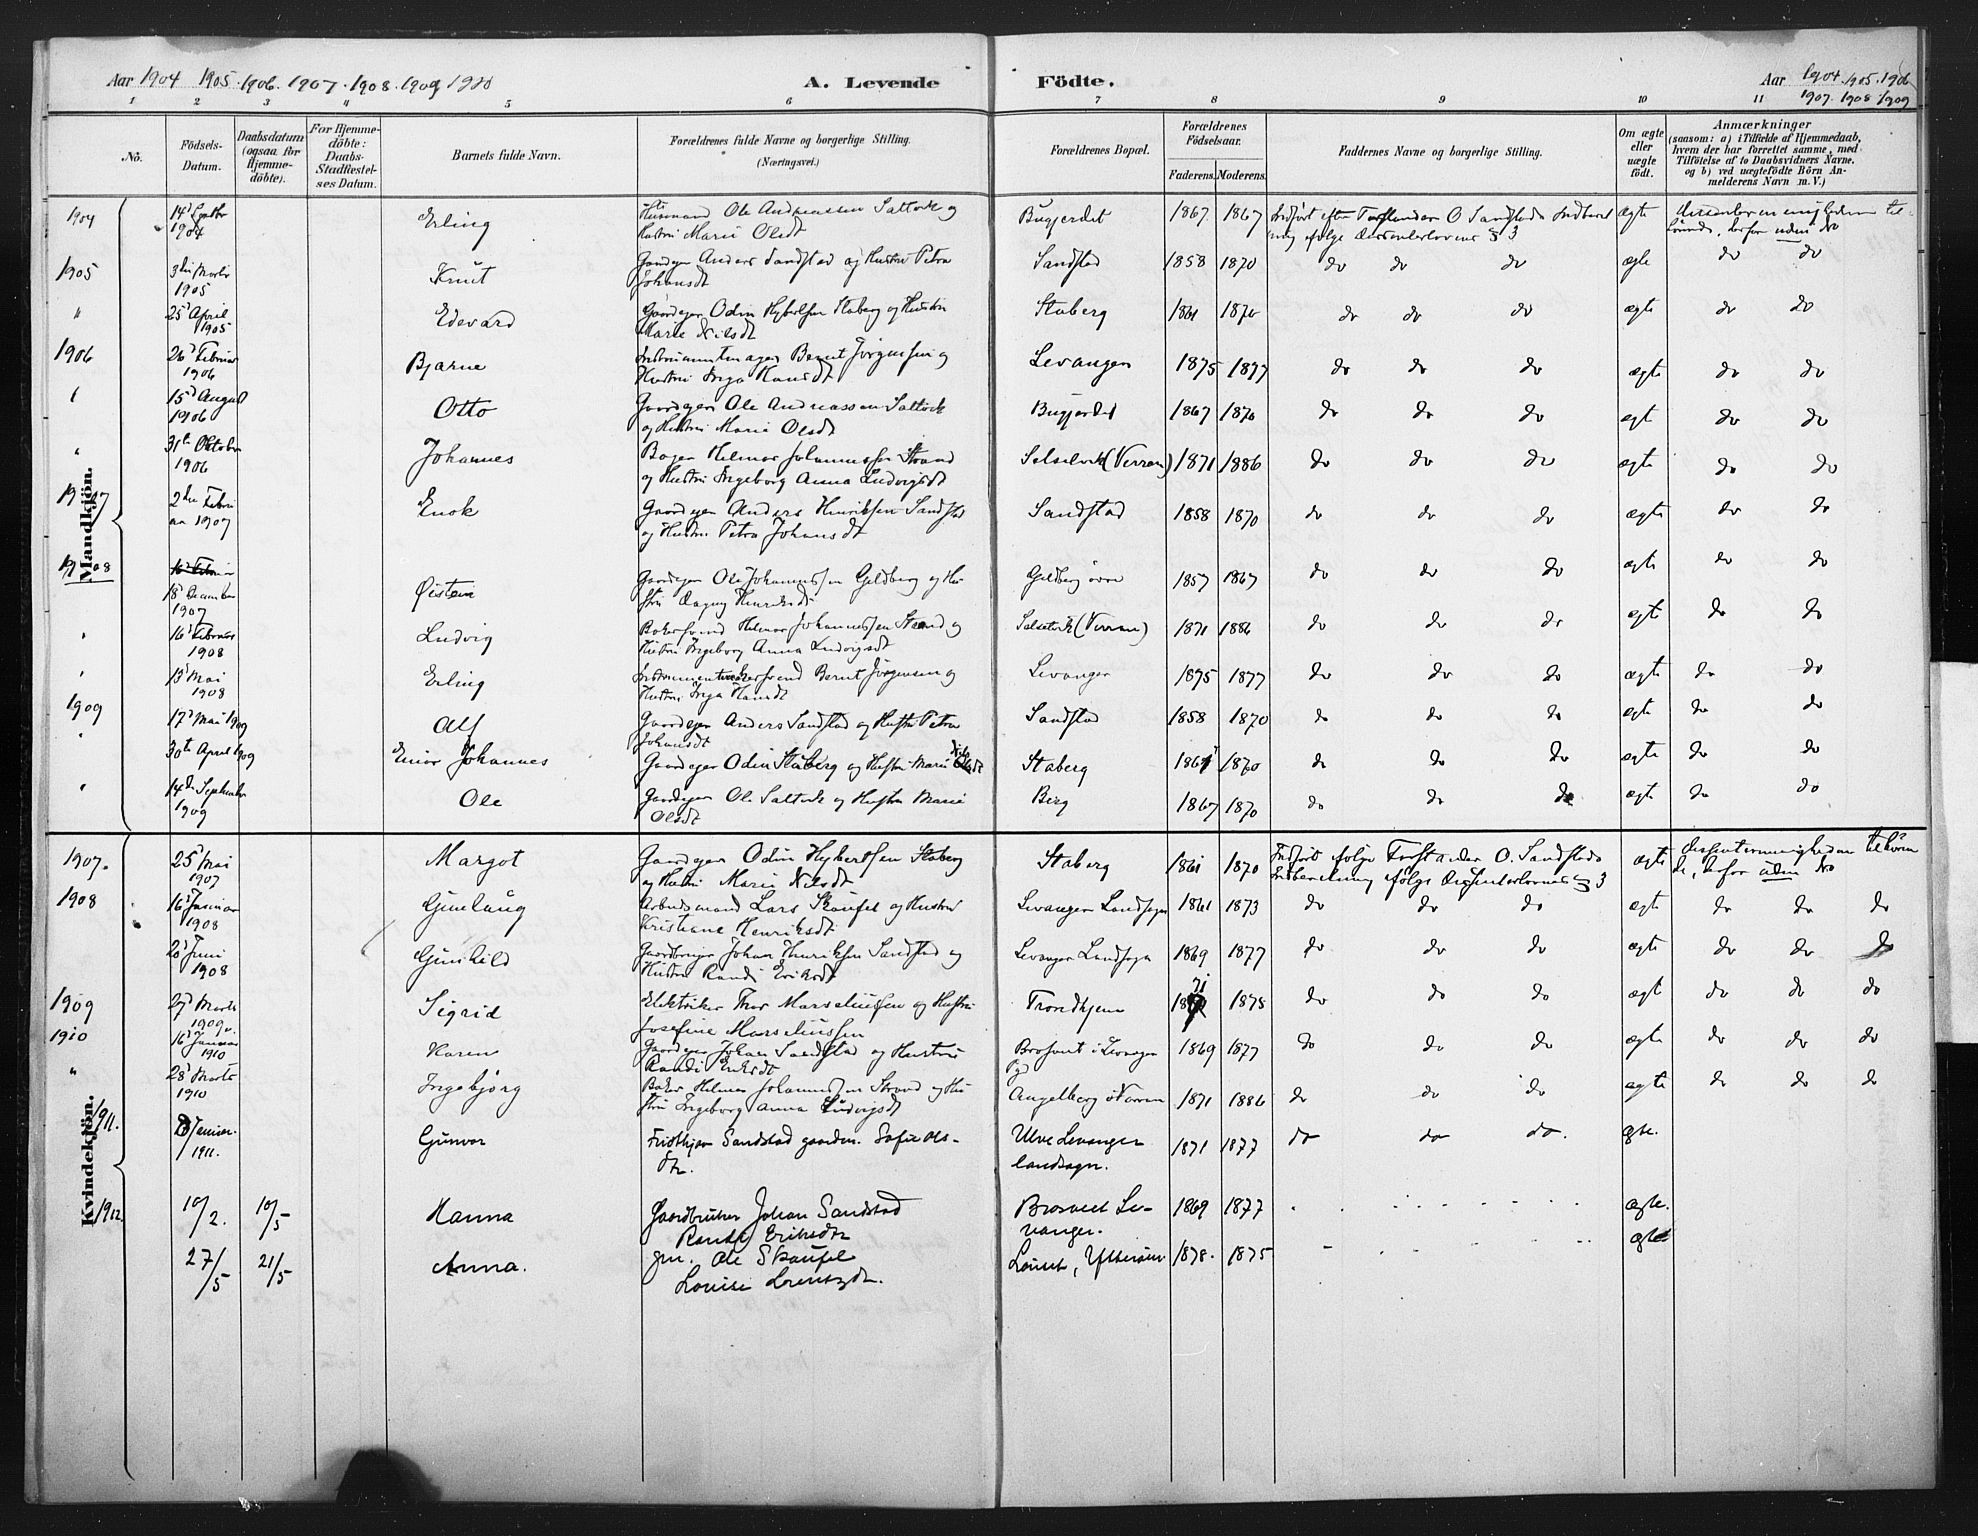 Aar 1904 1905. 1906. 1907. 1908. 1909 1910 A. Levende Födte. Aar 1904. 1905. 1906
1907. 1908. 1909
1 2 3 4 5 6 7 8 9 10 11
No. Födsels-Datum. Daabsdatum (ogsaa for Hjemmedöbte). For Hjemmedöbte: Daabs-Stadfæstelses Datum. Barnets fulde Navn. Forældrenes fulde Navne og borgerlige Stilling. (Næringsvei.) Forældrenes Bopæl. Forældrenes Födselsaar. Faderens. Moderens. Faddernes Navne og borgerlige Stilling. Om ægte eller uægte födt. Anmærkninger
(saasom: a) i Tilfælde af Hjemmedaab,
hvem der har forrettet samme, med
Tilföielse af to Daabsvidners Navne.
og b) ved uægtefödte Börn An-
melderens Navn m. V.)
Mandkjön.
1904 1904 Erling Husmand Ole Andreassen Saltvik og
Hustru Marie Olsdt Bugjerdet 1867 1867 Indført efter Forstander O Sandstads Indberet
ning ifølge Dissenterlovens § 3 ægte
1905 3die Marts
1905 Knut Gaardeger Anders Sandstad og Hustru Petra
Johansdt Sandstad 1858 1870 do do do ægte do do
" 25' April
1905 Edevard Gaardeger Odin Hybertsen Staberg og Hustru
Marie Nilsdt Staberg 1861 1870 do do do ægte do do
1906 26' Februar
1906 Bjarne Instrumentmager Bernt Jörgensen og
Hustru Inga Hansdt Levanger 1875 1877 do do do ægte do do
15' August
1906 Otto Gaardeger Ole Andreassen Saltvik
og Hustru Marie Olsdt Bugjerdet 1867 1870 do do do ægte do do
" 31te Oktober
1906 Johannes Bager Helmer Johannessen Strand
og Hustru Ingeborg Anna Ludvigsdt Selselvik (Verran) 1871 1886 do do do ægte do do
1907 2den Febru
ar 1907 Enok Gaardeger Anders Henriksen Sandstad
og Hustru Petra Johansdt Sandstad 1858 1870 do do do ægte do do
1908 18' December
1907 Øistein Gaardeger Ole Johannessen Geldberg og Hu
stru Henriksdt Geldberg övre 1857 1867 do do do ægte do do
" 16' Februar
1908 Ludvig Helmer Johannessen Strand og
Hustru Ingeborg Anna Ludvigsdt Selselvik (Verran) 1871 1886 do do do ægte do do
" 13' Mai
1908 Erling Bernt Jörgensen og
Hustru Inga Hansdt Levanger 1875 1877 do do do ægte do do
1909 17' Mai 1909 Alf Gaardeger Anders Sandstad og Hustru Petra
Johansdt Sandstad 1858 1870 do do do ægte do do
" 30te April 1909 Einar Johannes Gaardeger Odin Staberg og Hustru Marie Nilsdt Staberg 1861 1870 do do do ægte do do
" 14de September
1909 Ole Gaardeger Ole Saltvik og Hustru Marie
Olsdt Berg 1867 1870 do do do ægte do do
Kvindekjön.
1907. 25' Mai
1907 Margot Gaardeger Odin Hybertsen Staberg
og Hustru Marie Nilsdt Staberg 1861 1870 Indfört ifølge Forstander O. Sandstads
Indberetning ifølge Dissenterlovens § 3 ægte
1908 16' Januar
1908 Gunlaug Arbeidsmand Lars Skaufel og Hustru
Kristiane Henriksdt Levanger Landsogn 1861 1873 do do do ægte do do do
20' Juni
1908 Gunhild Gaardbruger Johan Henriksen Sandstad og
Hustru Randi Eriksdt Levanger Landsogn 1869 1877 do do do ægte do do do
1909 27' Marts
1909 Sigrid Elektriker Thor Marseliussen og Hustru
Josefine Marseliussen Trondhjem 1871 1875 do do do ægt do do do
1910 16' Januar
1910 Karen Gaardeger Johan Sandstad og Hustru
Randi Eriksdt i Levanger 1869 1877 do do do ægte do do do
" 28' Marts
1910 Ingebjörg Baker Helmer Johannessen Strand og Hu
stru Ingeborg Anna Ludvigsdt Angelberg i Verran 1871 1886 do do do ægte do do do
1911. Januar.
1911. Gunvor Fridthjov Sandstad gaardm. Sofie Ols-
dtr. Ulve Levanger
landsogn. 1871 1877 do do do. ægte.
1912. 10/2. 10/5 Hanna Gaardbruker Johan Sandstad
Randi Eriksdtr Brosveet Le-
vanger. 1869 1877 ægte.
27/5 21/5 Anna. gm. Ole Skaufel
Louise Lorentzdtr. Ytterøen 1878. 1875 ægte